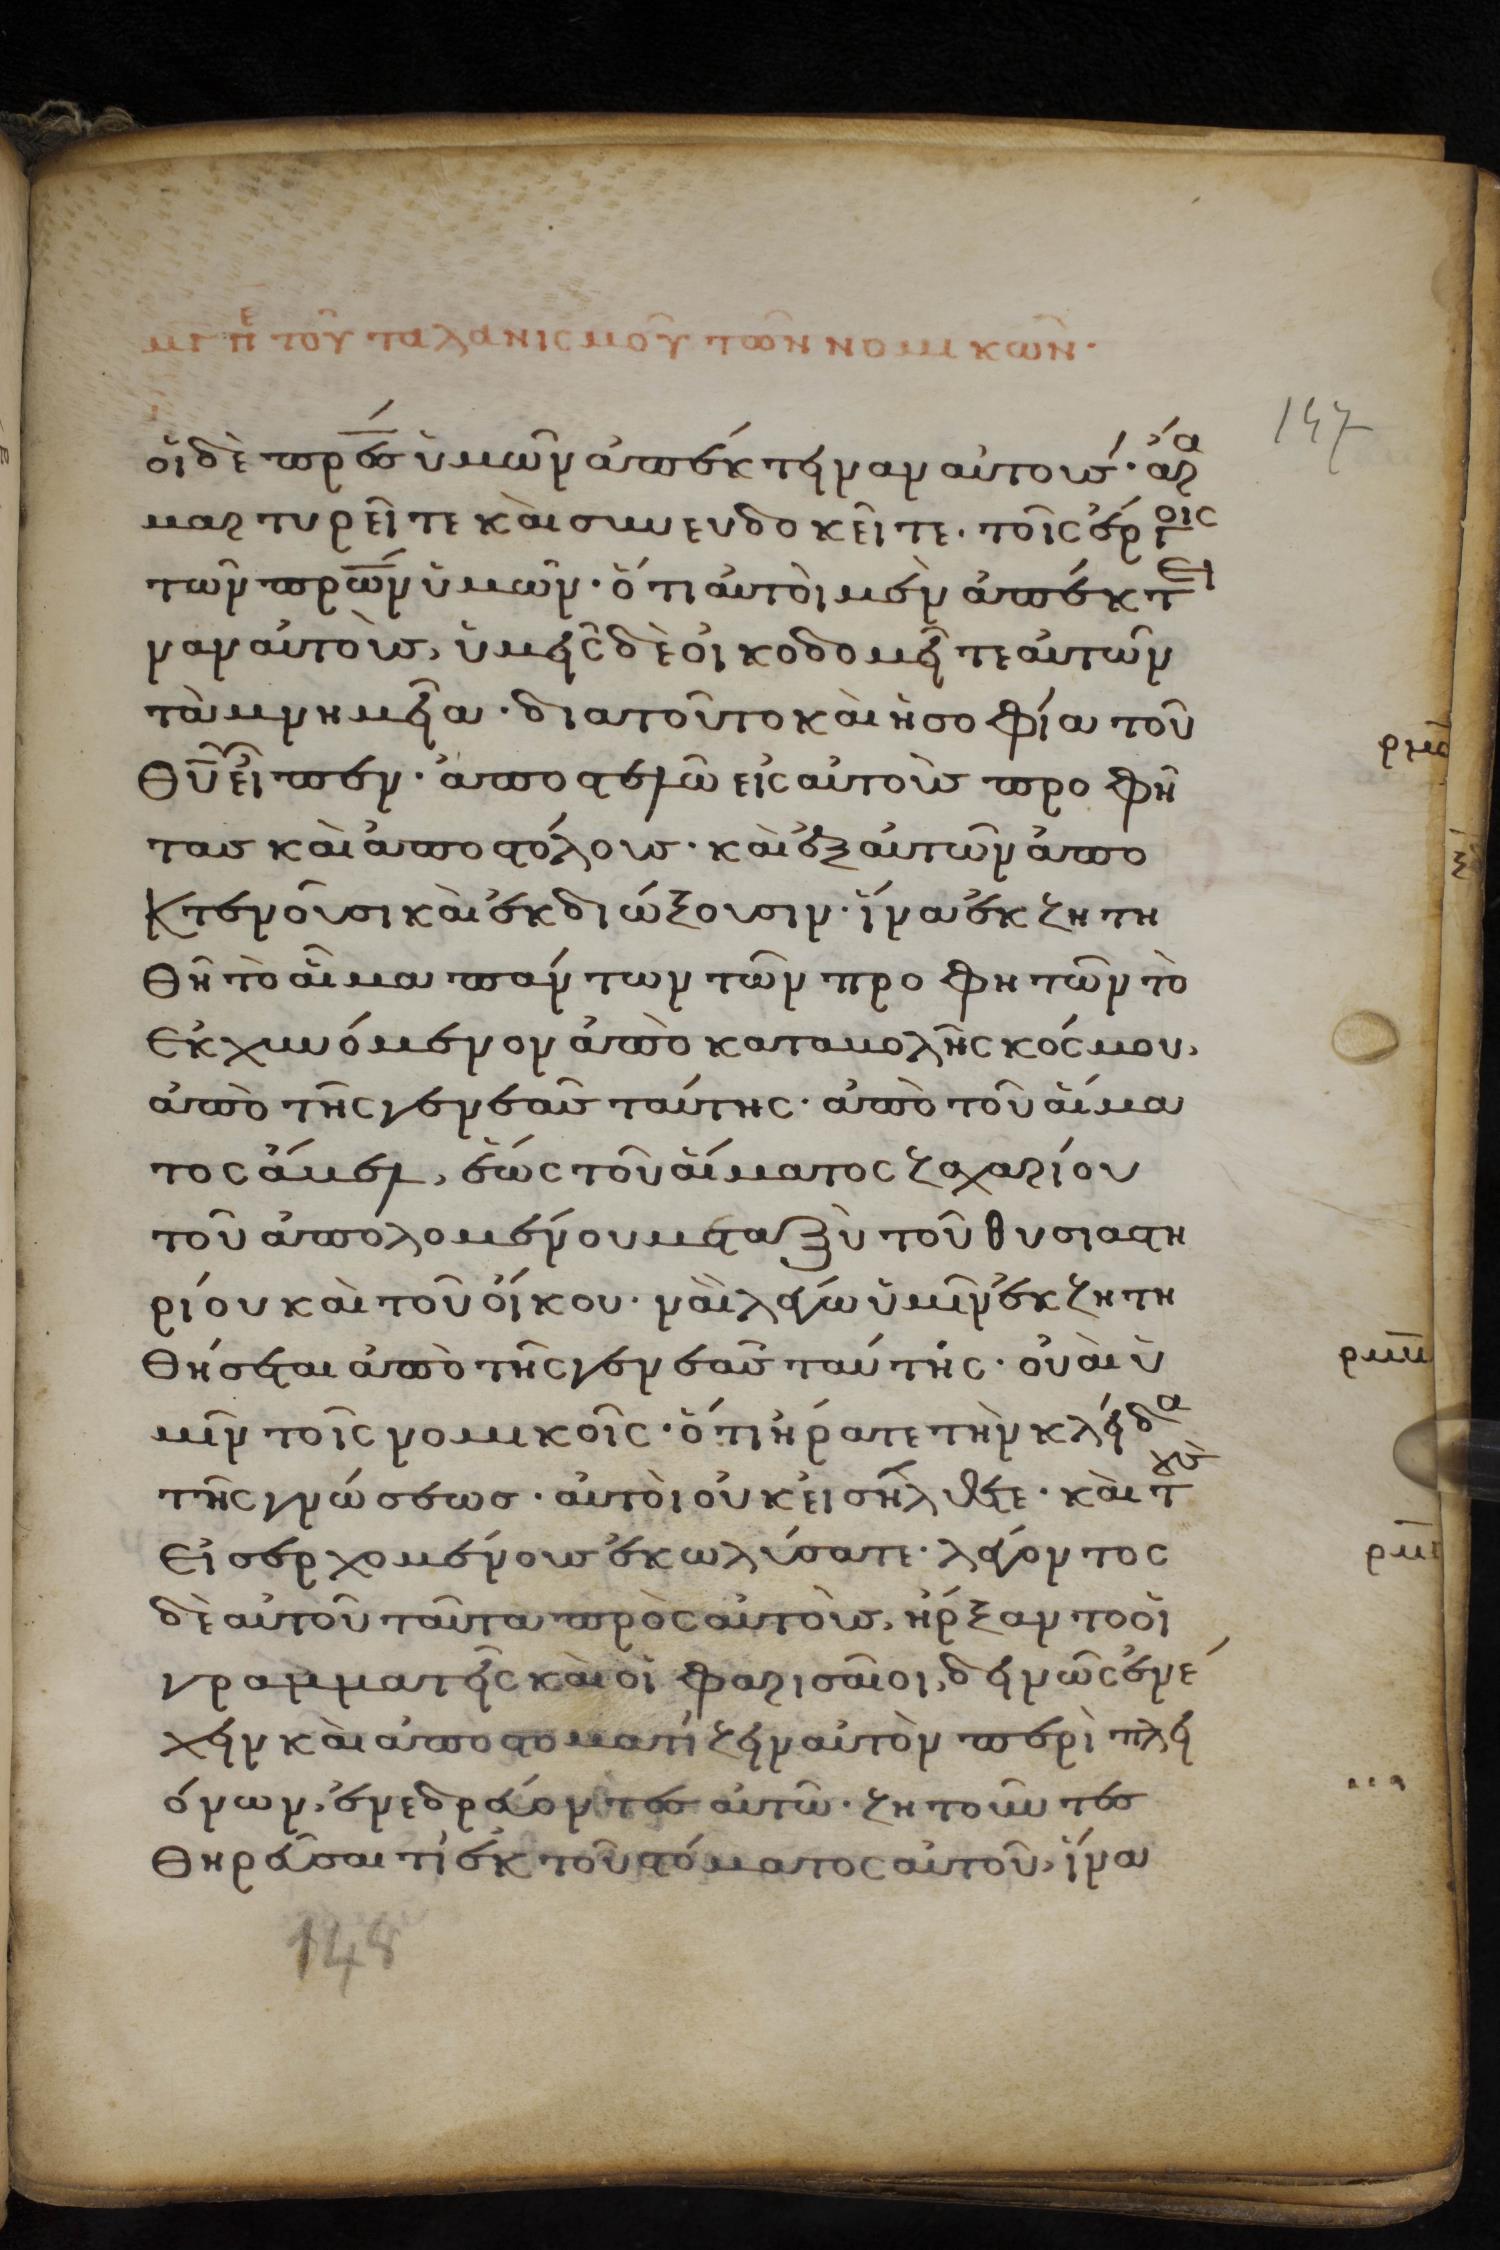 μγ πε τοῦ ταλανισμοῦ τῶν νομικῶν·
147
οἱ δὲ πρες ὑμῶν ἀπέκτειναν αὐτούς· ἄρα
μαρτυρεῖτε καὶ συνευδοκεῖτε· τοῖς ἔργοις
τῶν πρων ὑμῶν· ὅτι αὐτοὶ μὲν ἀπέκτει
ναν αὐτοὺς, ὑμεῖς δὲ οἰκοδομεῖτε αὐτῶν
τὰ μνημεῖα· διατοῦτο καὶ ἡ σοφία τοῦ
θυ εἶπεν· ἀποστελῶ εἰς αὐτοὺς προφή
τας καὶ ἀποστόλους· καὶ ἐξ αὐτῶν ἀπο
κτενοῦσι καὶ ἐκδιώξουσιν· ἵνα ἐκζητη
θῆ τὸ αἷμα πάντων τῶν προφητῶν τὸ
ἐκχυνόμενον ἀπὸ καταβολῆς κόσμου,
ἀπὸ τῆς γενεᾶς ταύτης· ἀπὸ τοῦ αἵμα
τος ἄβελ, ἕως τοῦ αἵματος ζαχαρίου
τοῦ ἀπολομένου μεταξὺ τοῦ θυσιαστη
ρίου καὶ τοῦ οἴκου· ναὶ λέγω ὑμῖν ἐκζητη
θήσεται ἀπὸ τῆς γενεᾶς ταύτης· οὐαὶ ὑ
μῖν τοῖς νομικοῖς· ὅτι ἤρατε τὴν κλεῖδα
τῆς γνώσεως· αὐτοὶ οὐκ εἰσήλθετε· καὶ τοὺς
εἰσερχομένους ἐκωλύσατε· λέγοντος
δὲ αὐτοῦ ταῦτα πρὸς αὐτοὺς, ἤρξαντο οἱ
γραμματεῖς καὶ οἱ φαρισαῖοι, δεινῶς ἐνέ
χειν καὶ ἀποστοματίζειν αὐτὸν περὶ πλει
όνων, ἐνεδρεύοντες αὐτῶ· ζητοῦντες
θηρεῦσαι τί ἐκ τοῦ στόματος αὐτοῦ, ἵνα
148